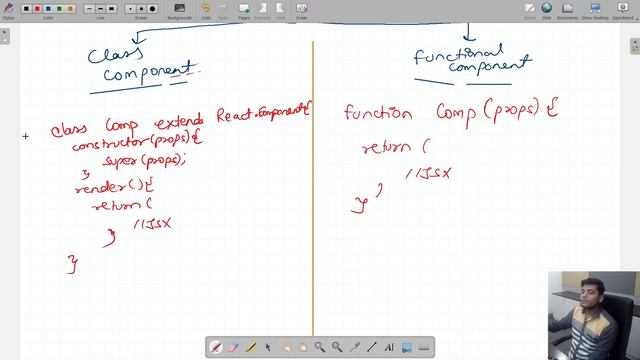 Stylus
Colors
Line
Eraser
Backgrounds
Undo
Redo
Pages
Previous
Next
Erase
Board
Web
Documents
Show Desktop
OpenBoard
class component
functional component
class Comp extends React.Component{
constructor(props){
super(props);
}
render(){
return (
//JSX
}
}
function Comp(props) {
return (
//JSX
)
}
A